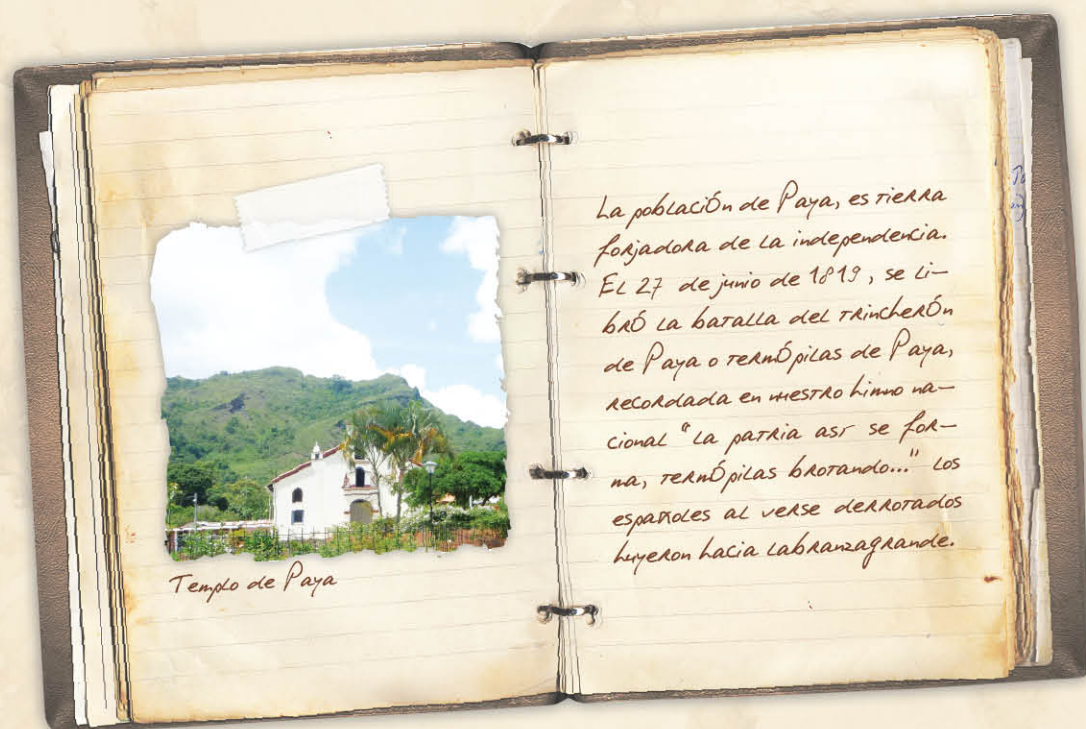 Templo de Paya
La población de Paya, es tierra
forjadora de la independencia.
El 27 de junio de 1819, se li-
bró la batalla del trincherón
de Paya o termópilas de Paya,
recordada en nuestro himno na-
cional "la patria así se for-
ma, termópilas brotando..." los
españoles al verse derrotados
huyeron hacia Labranzagrande.